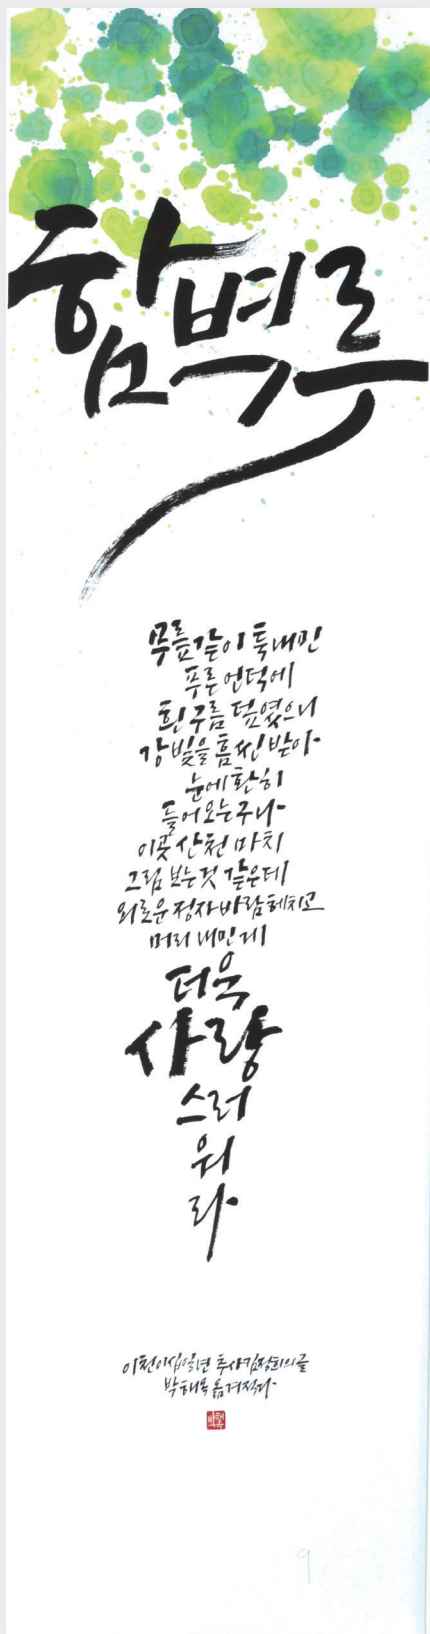 함벽루
무릎같이 툭내민
푸른 언덕에
흰 구름 덮였으니
강빛을 흠씬 받아
눈에 환히
들어오는구나
이곳 산천 마치
그림 보는것 같은데
외로운 정자 바람 헤치고
머리 내민 게
더욱
사랑
스러
워
라
이천이십일년 추사 김정희의 글
박해옥 옮겨적다
9